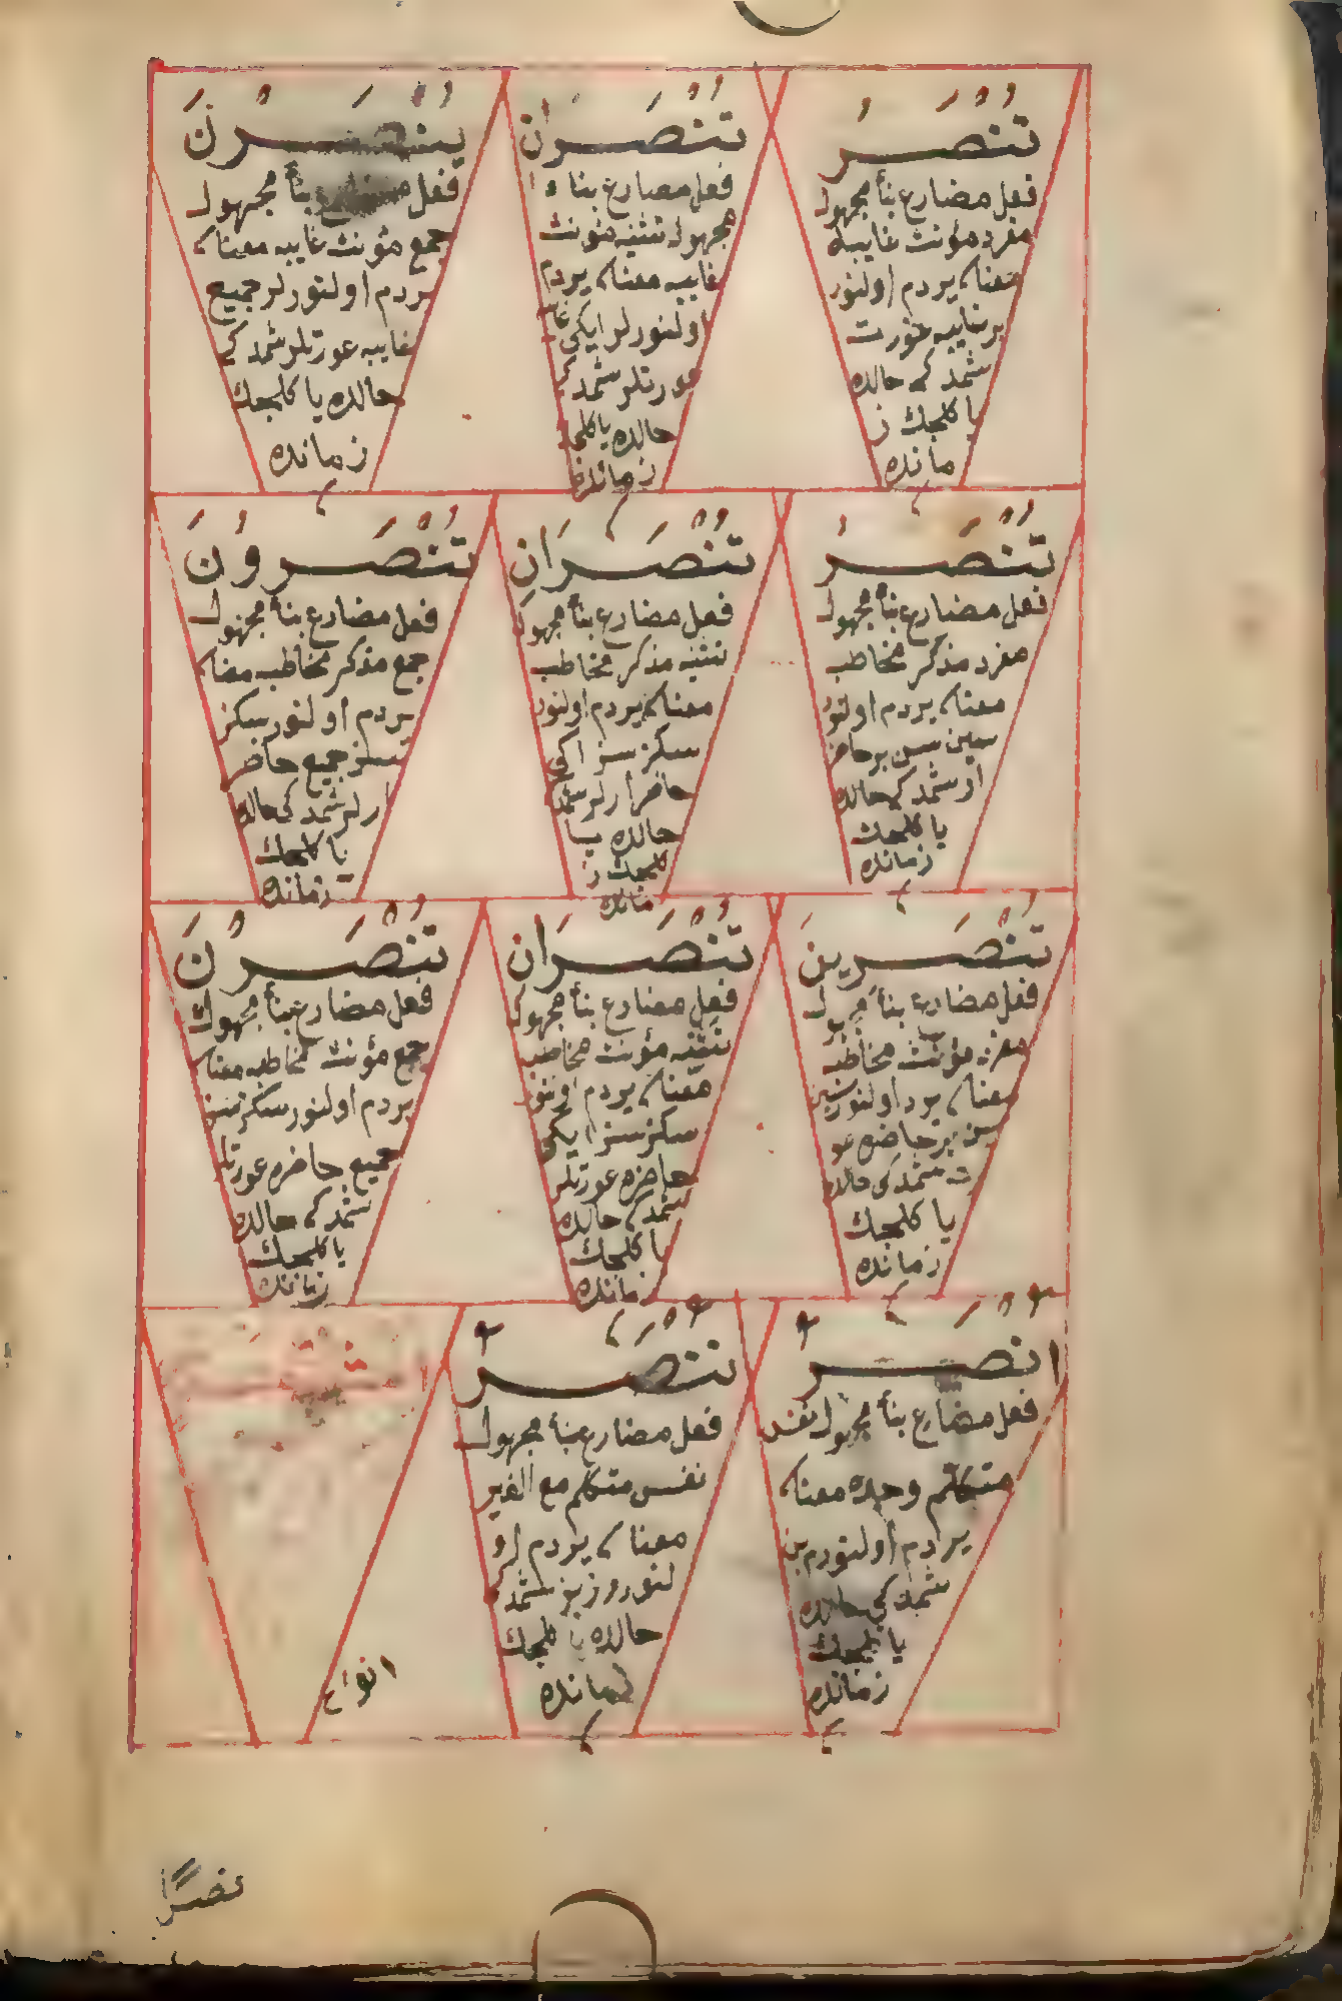 تُنْصَرُ
فعل مضارع بنأ مجهول
مفرد مؤنث غايبه
معناه يردم اولنور
بر غايبه عورت
شمدكه حالده
يا كلجك ز
مانده
تُنْصَرَانِ
فعل مضارع بناء
مجهول تثنيه مئونث
غايبه معناه يردم
اولنورلر ايكى
عورتلر شمدكى
حالده يا كلجك
زمانده
يُنْصَرْنَ
فعل مضارع بنأ مجهول
جمع مئونث غايبه معناه
يردم اولنورلر جميع
غايبه عورتلر شمدكى
حالده يا كلجك
زمانده
تُنْصَرُ
فعل مضارع بنأ مجهول
مفرد مذكر مخاطب
معناه يردم اولنور
سين سن بر حاضر
ار شمدكى حالده
يا كلجك
زمانده
تُنْصَرَانِ
فعل مضارع بنأ مجهول
تثنيه مذكر مخاطب
معناه يردم اولنور
سكز سز اكى
حاضر ارلر شمد
حالده يا
كلجك ز
مانده
تُنْصَرُونَ
فعل مضارع بنأ مجهول
جمع مذكر مخاطبه معناه
يردم اولنور سكز
سز جميع حاضر
ارلر شمدكى حالده
يا كلجك
زمانده
تُنْصَرِينَ
فعل مضارع بنأ مجهول
مفرد مؤنث مخاطبه
معناه يرد اولنور سين
سن بر حاضره عو
رت شمدكى حالده
يا كلجك
زمانده
تُنْصَرَانِ
فعل مضارع بنأ مجهول
تثنيه مؤنث مخاطبه
معناه يردم اولنور
سكز سز ايكى
حاضره عورتلر
شمدكه حالده
يا كلجك
زمانده
تُنْصَرْنَ
فعل مضارع بنأ مجهوك
جمع مؤنث مخاطبه معناه
يردم اولنور سكز سز
جميع حاضره عورتلر
شمدكه حالده
يا كلجك
زمانده
اُنْصَرُ
فعل مضارع بنأ مجهول نفس
متكلم وحده معناه
يردم اولنورم بن
شمدكى حالده
يا كلجك
زمانده
نُنْصَرُ
فعل مضارع بنأ مجهول
نفس متكلم مع الغير
معناه يردم او
لنوروز بز شمدكى
حالده يا كلجك
زمانده
انواع
نصرًا